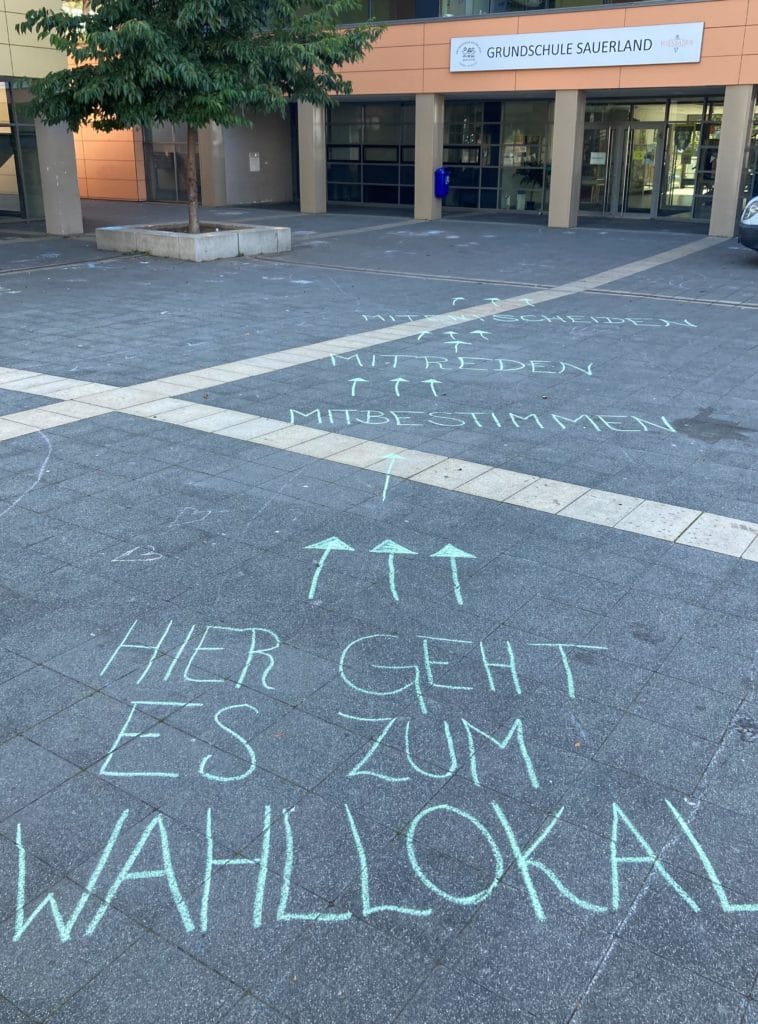 GRUNDSCHULE SAUERLAND
WIESBADEN
MITENTSCHEIDEN
MITREDEN
MITBESTIMMEN
HIER GEHT
ES ZUM
WAHLLOKAL